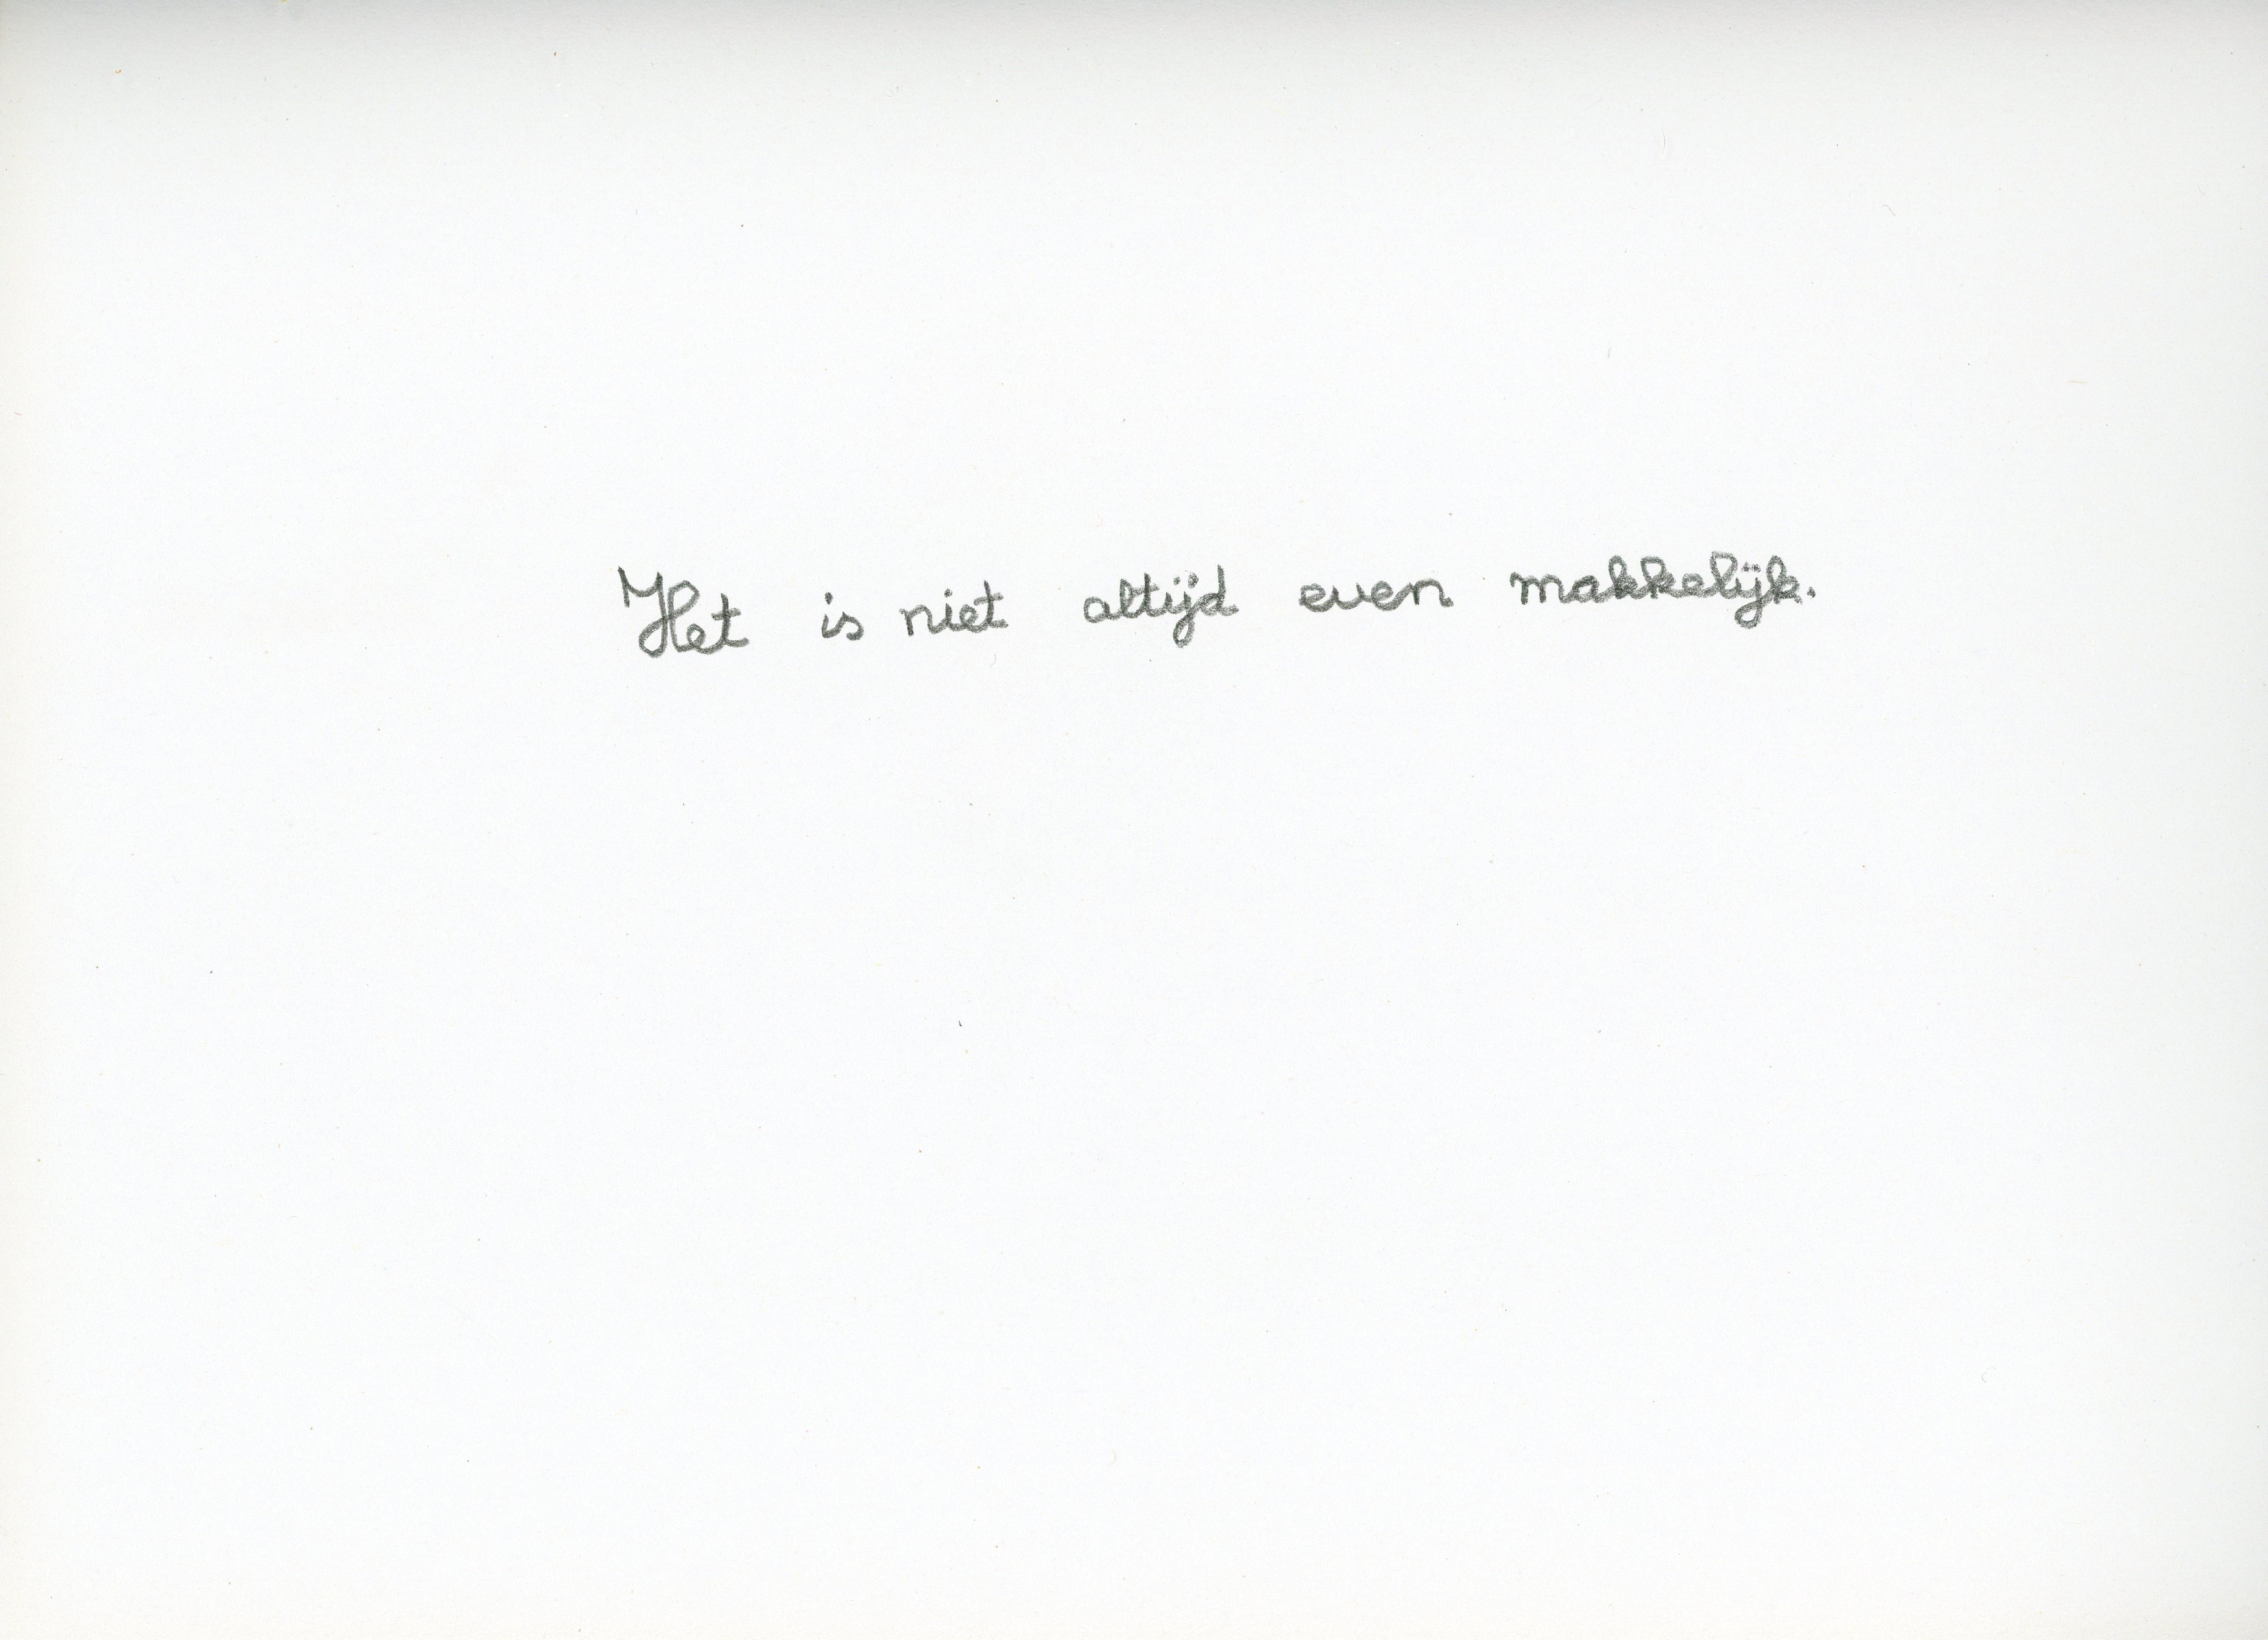 Het is niet altijd even makkelijk.